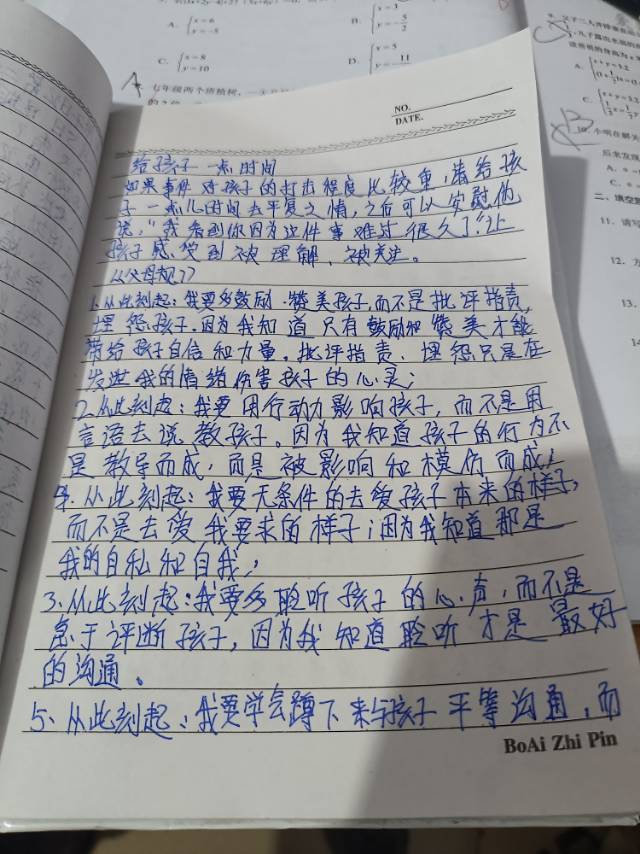 A. { x=6 y=-5
B. { x=3 y=-5/2
C. { x=8 y=10
D. { x=5 y=11
七年级两个班植树,一
NO.
DATE.
给孩子一点时间
如果事件对孩子的打击程度比较重,请给孩
子一点儿时间去平复心情,之后可以安慰他
说,“我看到你因为这件事难过很久了”让
孩子感受到被理解、被关注。
从父母规77
1.从此刻起:我要多鼓励、赞美孩子,而不是批评指责,
埋怨孩子.因为我知道只有鼓励和赞美才能
带给孩子自信和力量。批评指责、埋怨只是在
发泄我的情绪伤害孩子的心灵;
2.从此刻起:我要用行动力影响孩子,而不是用
言语去说教孩子。因为我知道孩子的行为不
是教导而成,而是被影响和模仿而成!
4.从此刻起:我要无条件的去爱孩子本来的样子,
而不是去爱我要求的样子;因为我知道那是
我的自私和自我,
3.从此刻起:我要多聆听孩子的心声,而不是
急于评断孩子,因为我知道聆听才是最好
的沟通。
5、从此刻起:我要学会蹲下来与孩子平等沟通,而
BoAi Zhi Pin
小明在解关
后来发现
二、填空题
11. 请写
12.
13.